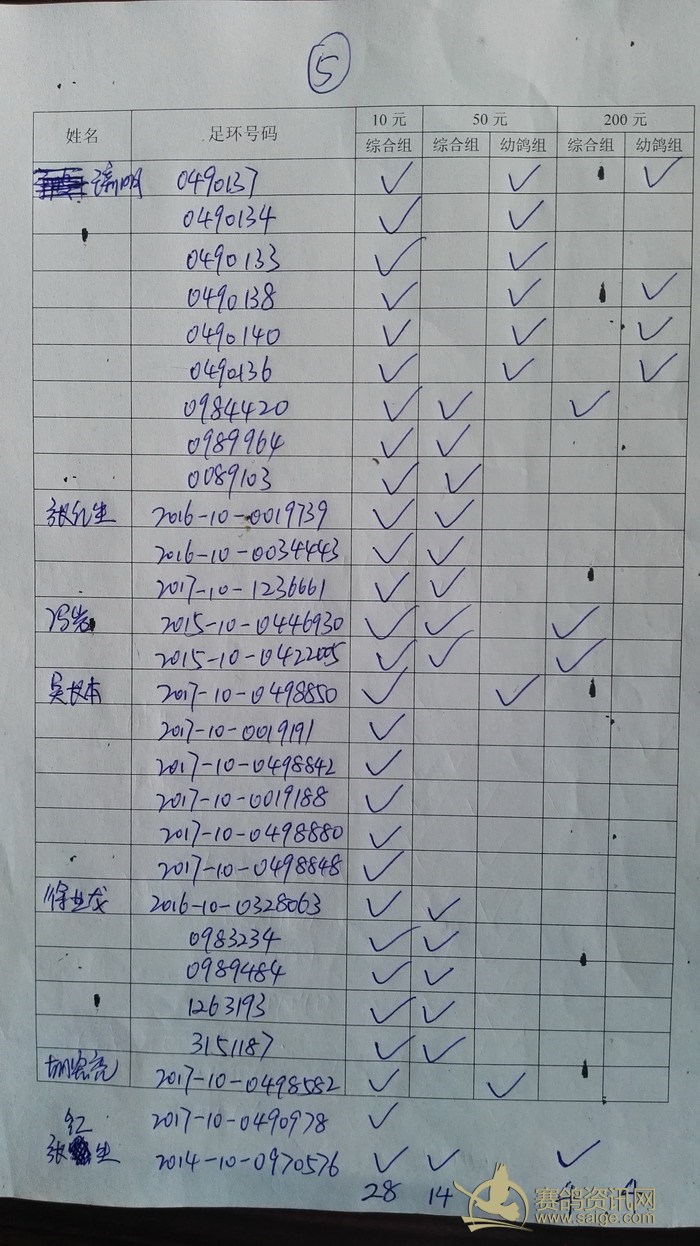 ⑤
姓名 足环号码 10元 50元 200元
综合组 综合组 幼鸽组 综合组 幼鸽组
0490137 ✓ ✓ ✓
0490134 ✓ ✓
0490133 ✓ ✓
0490138 ✓ ✓ ✓
0490140 ✓ ✓ ✓
0490136 ✓ ✓ ✓
0984420 ✓ ✓ ✓
0989964 ✓ ✓
0089103 ✓ ✓
张红生 2016-10-0019739 ✓ ✓
2016-10-0034443 ✓ ✓
2017-10-1236661 ✓ ✓
冯岩 2015-10-0446930 ✓ ✓ ✓
2015-10-0422005 ✓ ✓ ✓
吴长本 2017-10-0498850 ✓ ✓
2017-10-0019191 ✓
2017-10-0498842 ✓
2017-10-0019188 ✓
2017-10-0498880 ✓
2017-10-0498848 ✓
徐业成 2016-10-0328063 ✓ ✓
0983234 ✓ ✓
0989484 ✓ ✓
1263193 ✓ ✓
3151187 ✓ ✓
2017-10-0498582 ✓ ✓
2017-10-0490978 ✓
红
张生 2014-10-0970576 ✓ ✓ ✓
28 14 4
赛鸽资讯网
www.saige.com